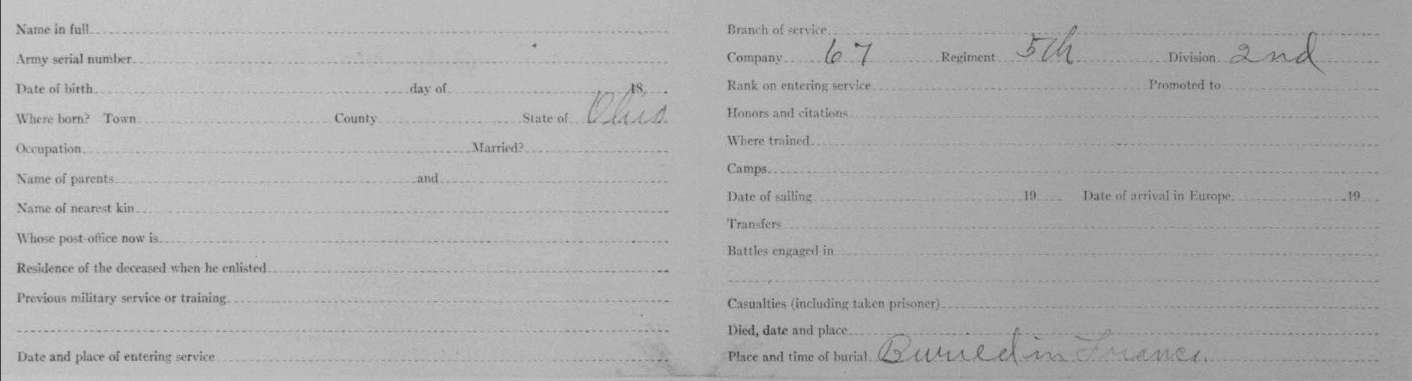 Name in full
Army serial number
Date of birth day of 18
Where born? Town County State of Ohio
Occupation Married?
Name of parents and
Name of nearest kin
Whose post-office now is
Residence of the deceased when he enlisted
Previous military service or training
Date and place of entering service
Branch of service
Company 67 Regiment 5th Division 2nd
Rank on entering service Promoted to
Honors and citations
Where trained
Camps
Date of sailing 19 Date of arrival in Europe 19
Transfers
Battles engaged in
Casualties (including taken prisoner)
Died, date and place
Place and time of burial Buried in France.